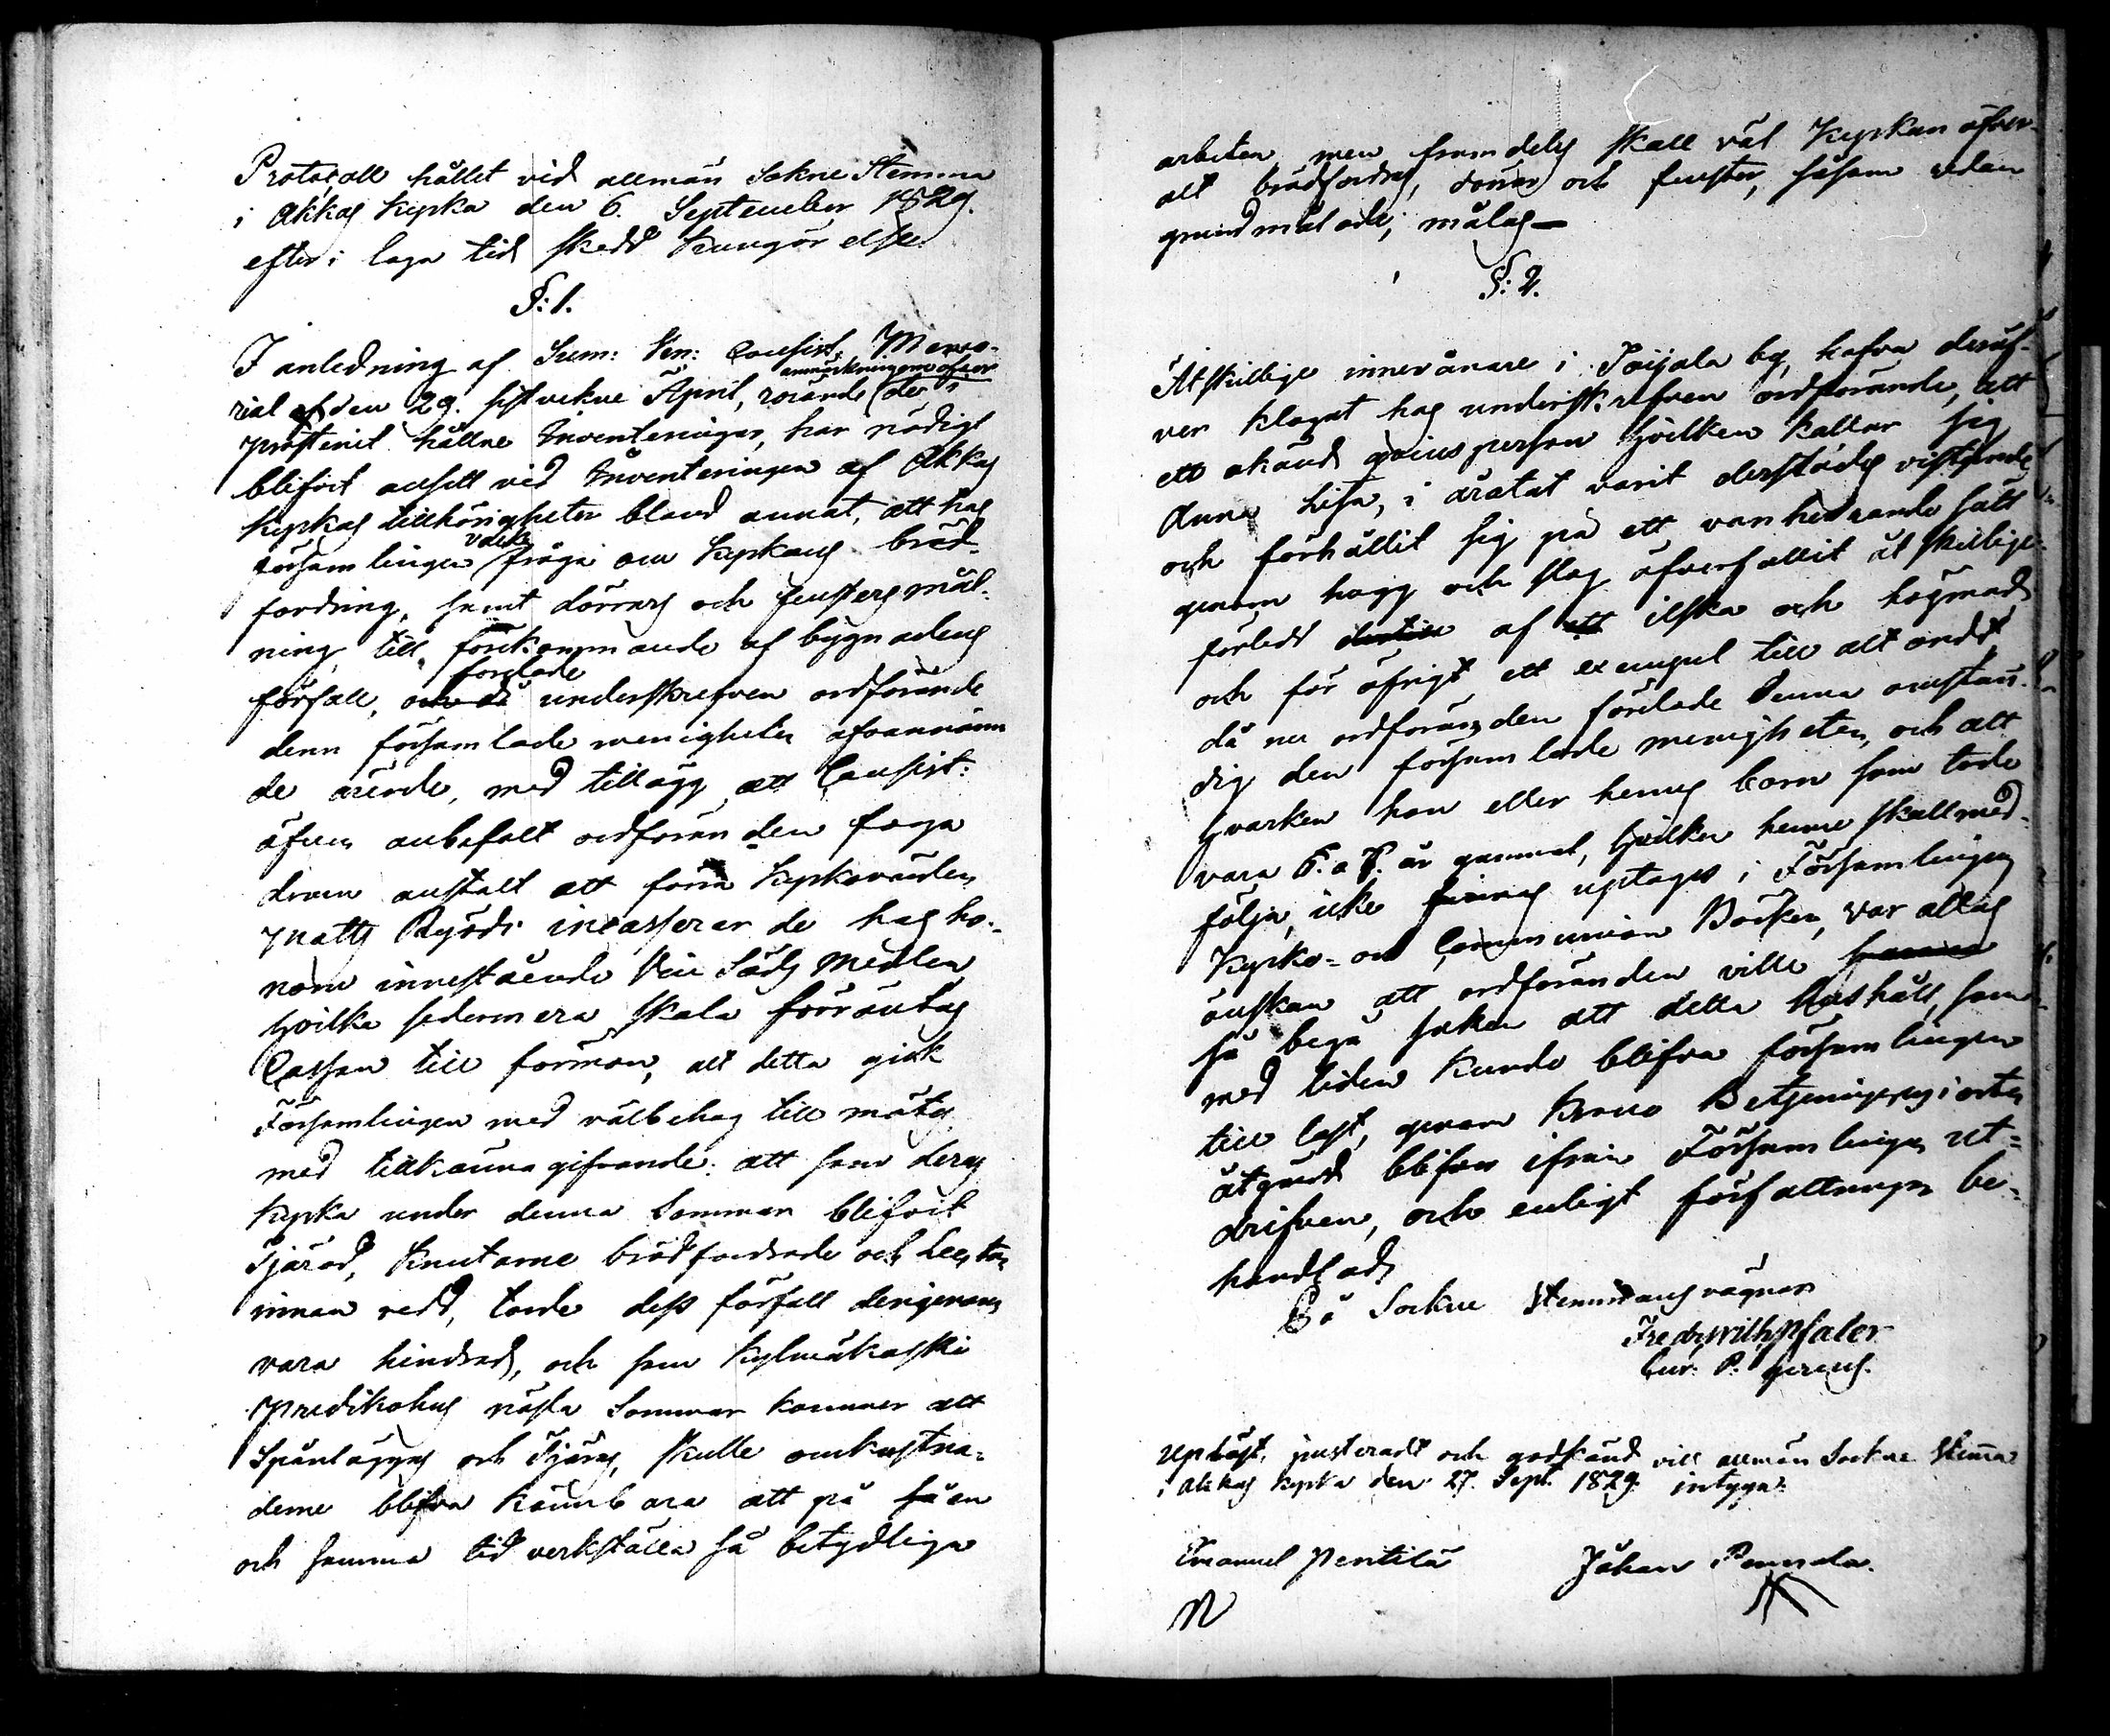 Protocoll hållet vid allmän Sokne Stemma
i Akkas kyrka den 6. September 1829.
efter i laga tid skedd kungörelse.
§: 1.
I anledning af Sum: Ven: Consist: Memo-
rial af den 29. sistvekne April, rörande de
anmärkningarne öfver
prosteriet hållne Inventeringar, har nödigt
blifvit ansett vid Inventeringen af Akkas
kyrkas tillhörigheter bland annat, att hos
församlingen väcka fråga om kyrkans bräd-
fordring, samt dörrars och fensters mål-
ning till förekommande af bygnadens
förfall, och då förelade underskrefven ordförande
denn församlade menigheten ofvannämn
de ärende, med tillägg att Consist:
äfven anbefalt ordföranden foga
dravm anstalt att förra kyrkovärden
Matts Röyödi incasserar de hos ho-
nom innestående Vin Säds Medlen
hvilka sedermera skola förräntas
Cassan till förmon, att detta gick
Församlingen med välbehag till mötes
med tillkännagifvande: att som deras
kyrka under denna Sommar blifvit
Tjärad, knutarne brädfordrade och
innan redd, torde dess förfall derigenom
vara hindrad, och som Kylmäkoski
Predikohus nästa Sommar kommer att
Spånläggas och Tjäras, skulle omkostna-
derne blifva kännbara att på en
och samma tid verkställa så betydliga
arbeten, men framdeles skall väl kyrkan öfver-
alt brädfordras, dörrar och fenster, såsom redan
grundmålade, målas —
§: 2.
Åtskillige innevånare i Toijala by, hafva deröf-
ver klagat hos underskrefven ordförande, att
ett okänd qvinsperson hvilken kallar sig
Anna Lisa, i åratat varit derstädes vistande
och förhållit sig på ett vanhedrande sätt
genom hugg och slag öfverfallit åtskillige
förledd af ilska och högmod
och för öfrigt ett exempel till alt ondt,
då nu ordföranden förelade denna omstän-
dig den församlade menigheten, och att
hvarken hon eller hennes barn som torde
vara 6. a 7. år gammal, hvilken henne skall med-
följa, icke finnes uptagne i Församlingens
Kyrko- och Communion Böcker, var allas
önskan att ordföranden ville
så bega saken att detta hushåll, som
med tiden kunde blifva församlingen
till last, genom krono Betjeningens i orten
åtgärd blifva ifrån Församlingen ut-
drifven, och enligt författningar be-
handlad.
På Sockne Stemmans vägnar
Fredr. Wilh. Pfaler
Cur. P. Gerens.
Upläst, justeradt och godkänd vid allmän Sockne Stemma
i Akkas kyrka den 27. Sept. 1829. intyga:
Emanuel Pentilä Johan Pennala.